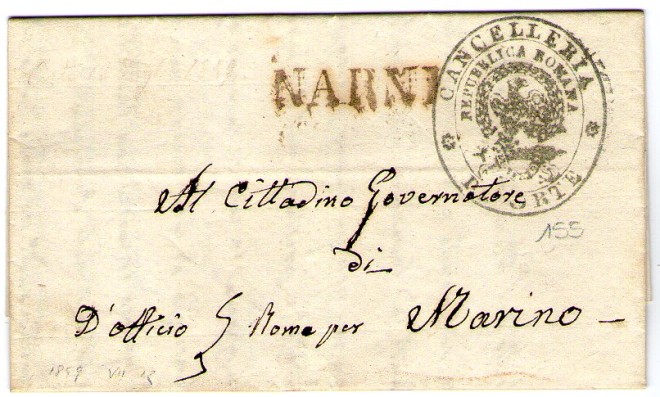 NARNI
CANCELLERIA
REPUBBLICA ROMANA
ORTE
Al Cittadino Governatore
155
di
D'officio Roma per Marino
VII